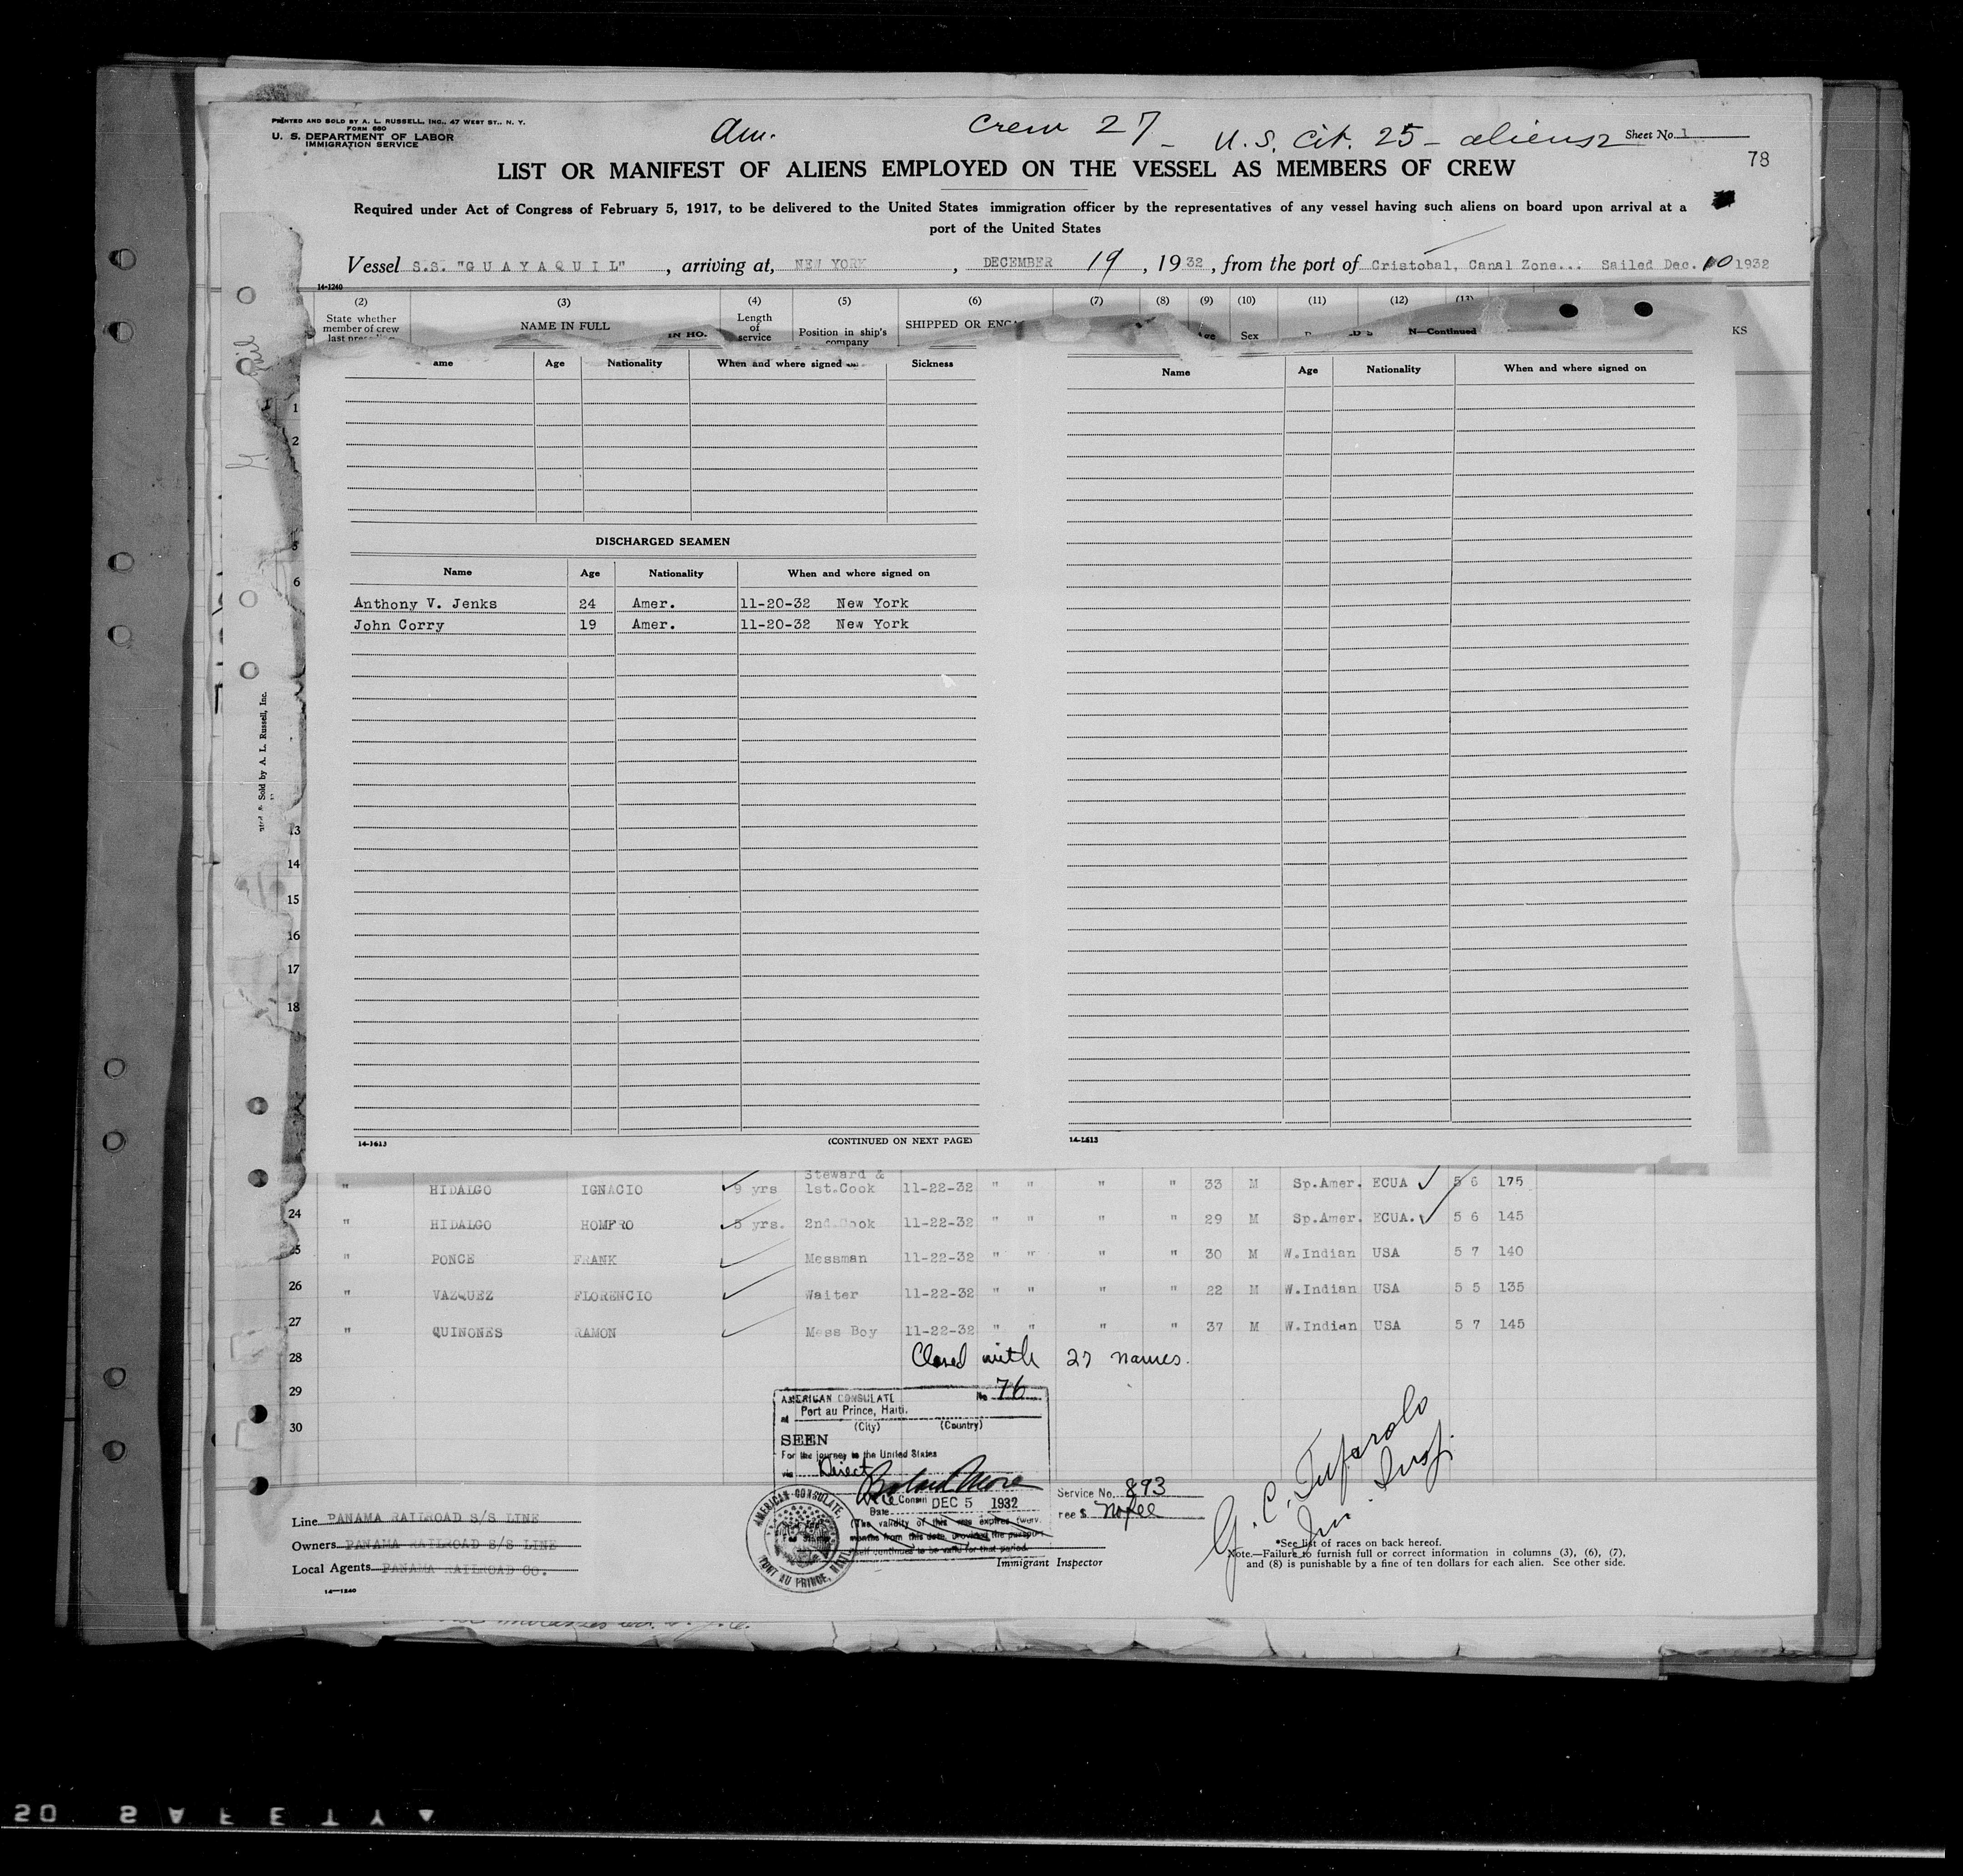 PRINTED AND SOLD BY A. L. RUSSELL, INC., 47 WEST ST., N. Y.
FORM 680
U. S. DEPARTMENT OF LABOR
IMMIGRATION SERVICE
Am.
Crew 27 - U.S. Cit. 25 - aliens 2
Sheet No. 1
78
LIST OR MANIFEST OF ALIENS EMPLOYED ON THE VESSEL AS MEMBERS OF CREW
Required under Act of Congress of February 5, 1917, to be delivered to the United States immigration officer by the representatives of any vessel having such aliens on board upon arrival at a
port of the United States
Vessel S.S. "G U A Y A Q U I L", arriving at, NEW YORK, DECEMBER 19, 1932, from the port of Cristobal, Canal Zone... Sailed Dec. 10 1932
14-1240
(2) (3) (4) (5) (6) (7) (8) (9) (10) (11) (12) (13)
State whether member of crew
NAME IN FULL
Length of service
Position in ship's company
SHIPPED OR
Sex
N—Continued
KS
Name Age Nationality When and where signed on Sickness
Name Age Nationality When and where signed on
1
2
DISCHARGED SEAMEN
Name Age Nationality When and where signed on
5
6
Anthony V. Jenks 24 Amer. 11-20-32 New York
John Corry 19 Amer. 11-20-32 New York
Sold by A. L. Russell, Inc.
13
14
15
16
17
18
14-1613 (CONTINUED ON NEXT PAGE)
14-1613
" HIDALGO IGNACIO 9 yrs Steward & 1st.Cook 11-22-32 " " " " 33 M Sp.Amer. ECUA 5 6 175
24 " HIDALGO HOMERO 5 yrs. 2nd.Cook 11-22-32 " " " " 29 M Sp.Amer. ECUA. 5 6 145
25 " PONCE FRANK Messman 11-22-32 " " " " 30 M W.Indian USA 5 7 140
26 " VAZQUEZ FLORENCIO Waiter 11-22-32 " " " " 22 M W.Indian USA 5 5 135
27 " QUINONES RAMON Mess Boy 11-22-32 " " " " 37 M W.Indian USA 5 7 145
28 Closed with 27 names.
29
30
AMERICAN CONSULATE No 76
at Port au Prince, Haiti.
(City) (Country)
SEEN
For the journey to the United States
via Direct
Vice Consul
Date DEC 5 1932
(The validity of this visa expires twelve
months from this date, provided the passport
itself continues to be valid for that period.
AMERICAN CONSULATE,
PORT AU PRINCE, HAITI
Service No. 893
Fee $ No fee
Line PANAMA RAILROAD S/S LINE
Owners PANAMA RAILROAD S/S LINE
Local Agents PANAMA RAILROAD CO.
14—1240
Immigrant Inspector
*See list of races on back hereof.
Note.—Failure to furnish full or correct information in columns (3), (6), (7),
and (8) is punishable by a fine of ten dollars for each alien. See other side.
SAFETY